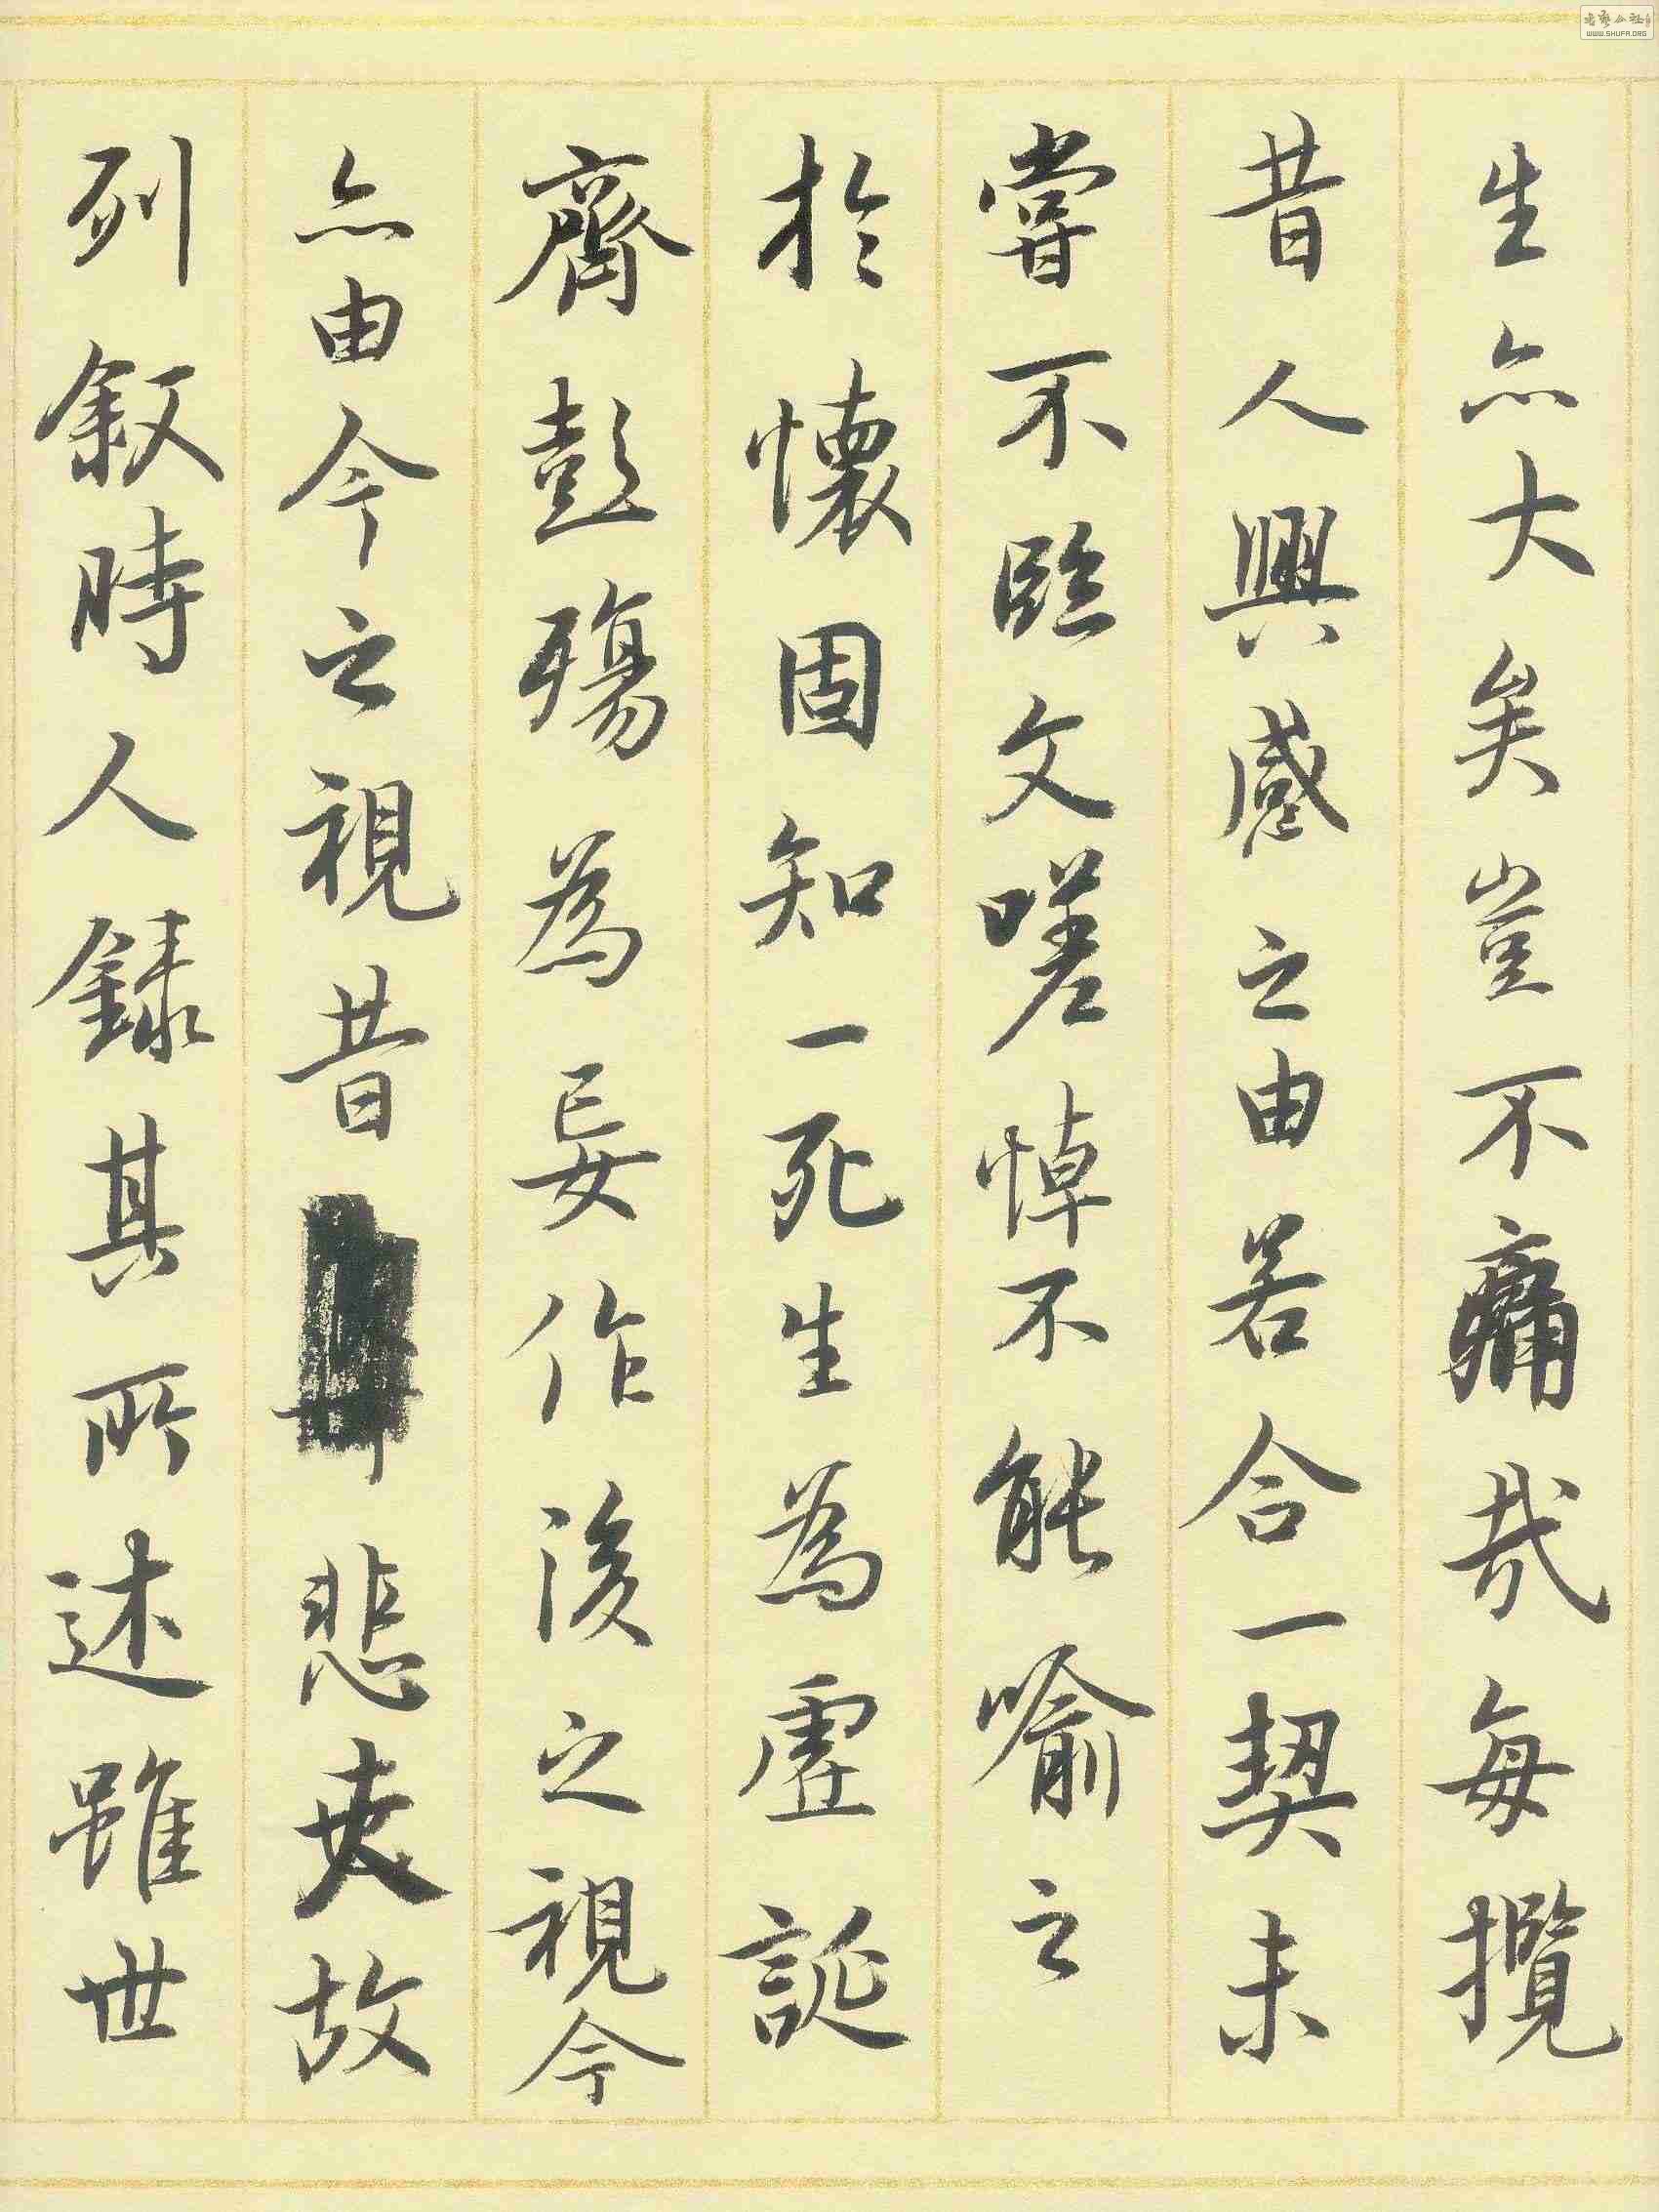 生亦大矣豈不痛哉每攬
昔人興感之由若合一契未
嘗不臨文嗟悼不能喻之
於懷固知一死生為虛誕
齊彭殤為妄作後之視今
亦由今之視昔悲夫故
列叙時人錄其所述雖世
WWW.SHUFA.ORG